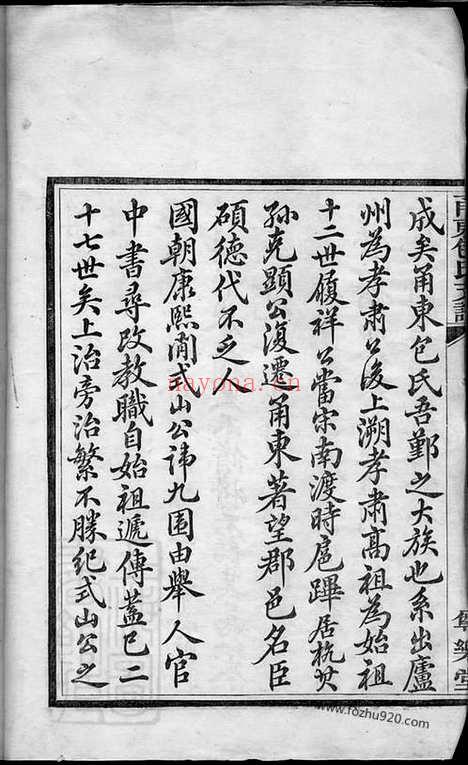 成矣甬東包氏吾鄞之大族也系出廬
州為孝肅公後上溯孝肅高祖為始祖
十二世履祥公當宋南渡時扈蹕居杭其
孫克顯公復遷甬東著望郡邑名臣
碩德代不乏人
國朝康熙間式山公諱九圍由舉人官
中書尋改教職自始祖遞傳蓋已二
十七世矣上治旁治繁不勝紀式山公之
nayona.cn
www.fozhu920.com